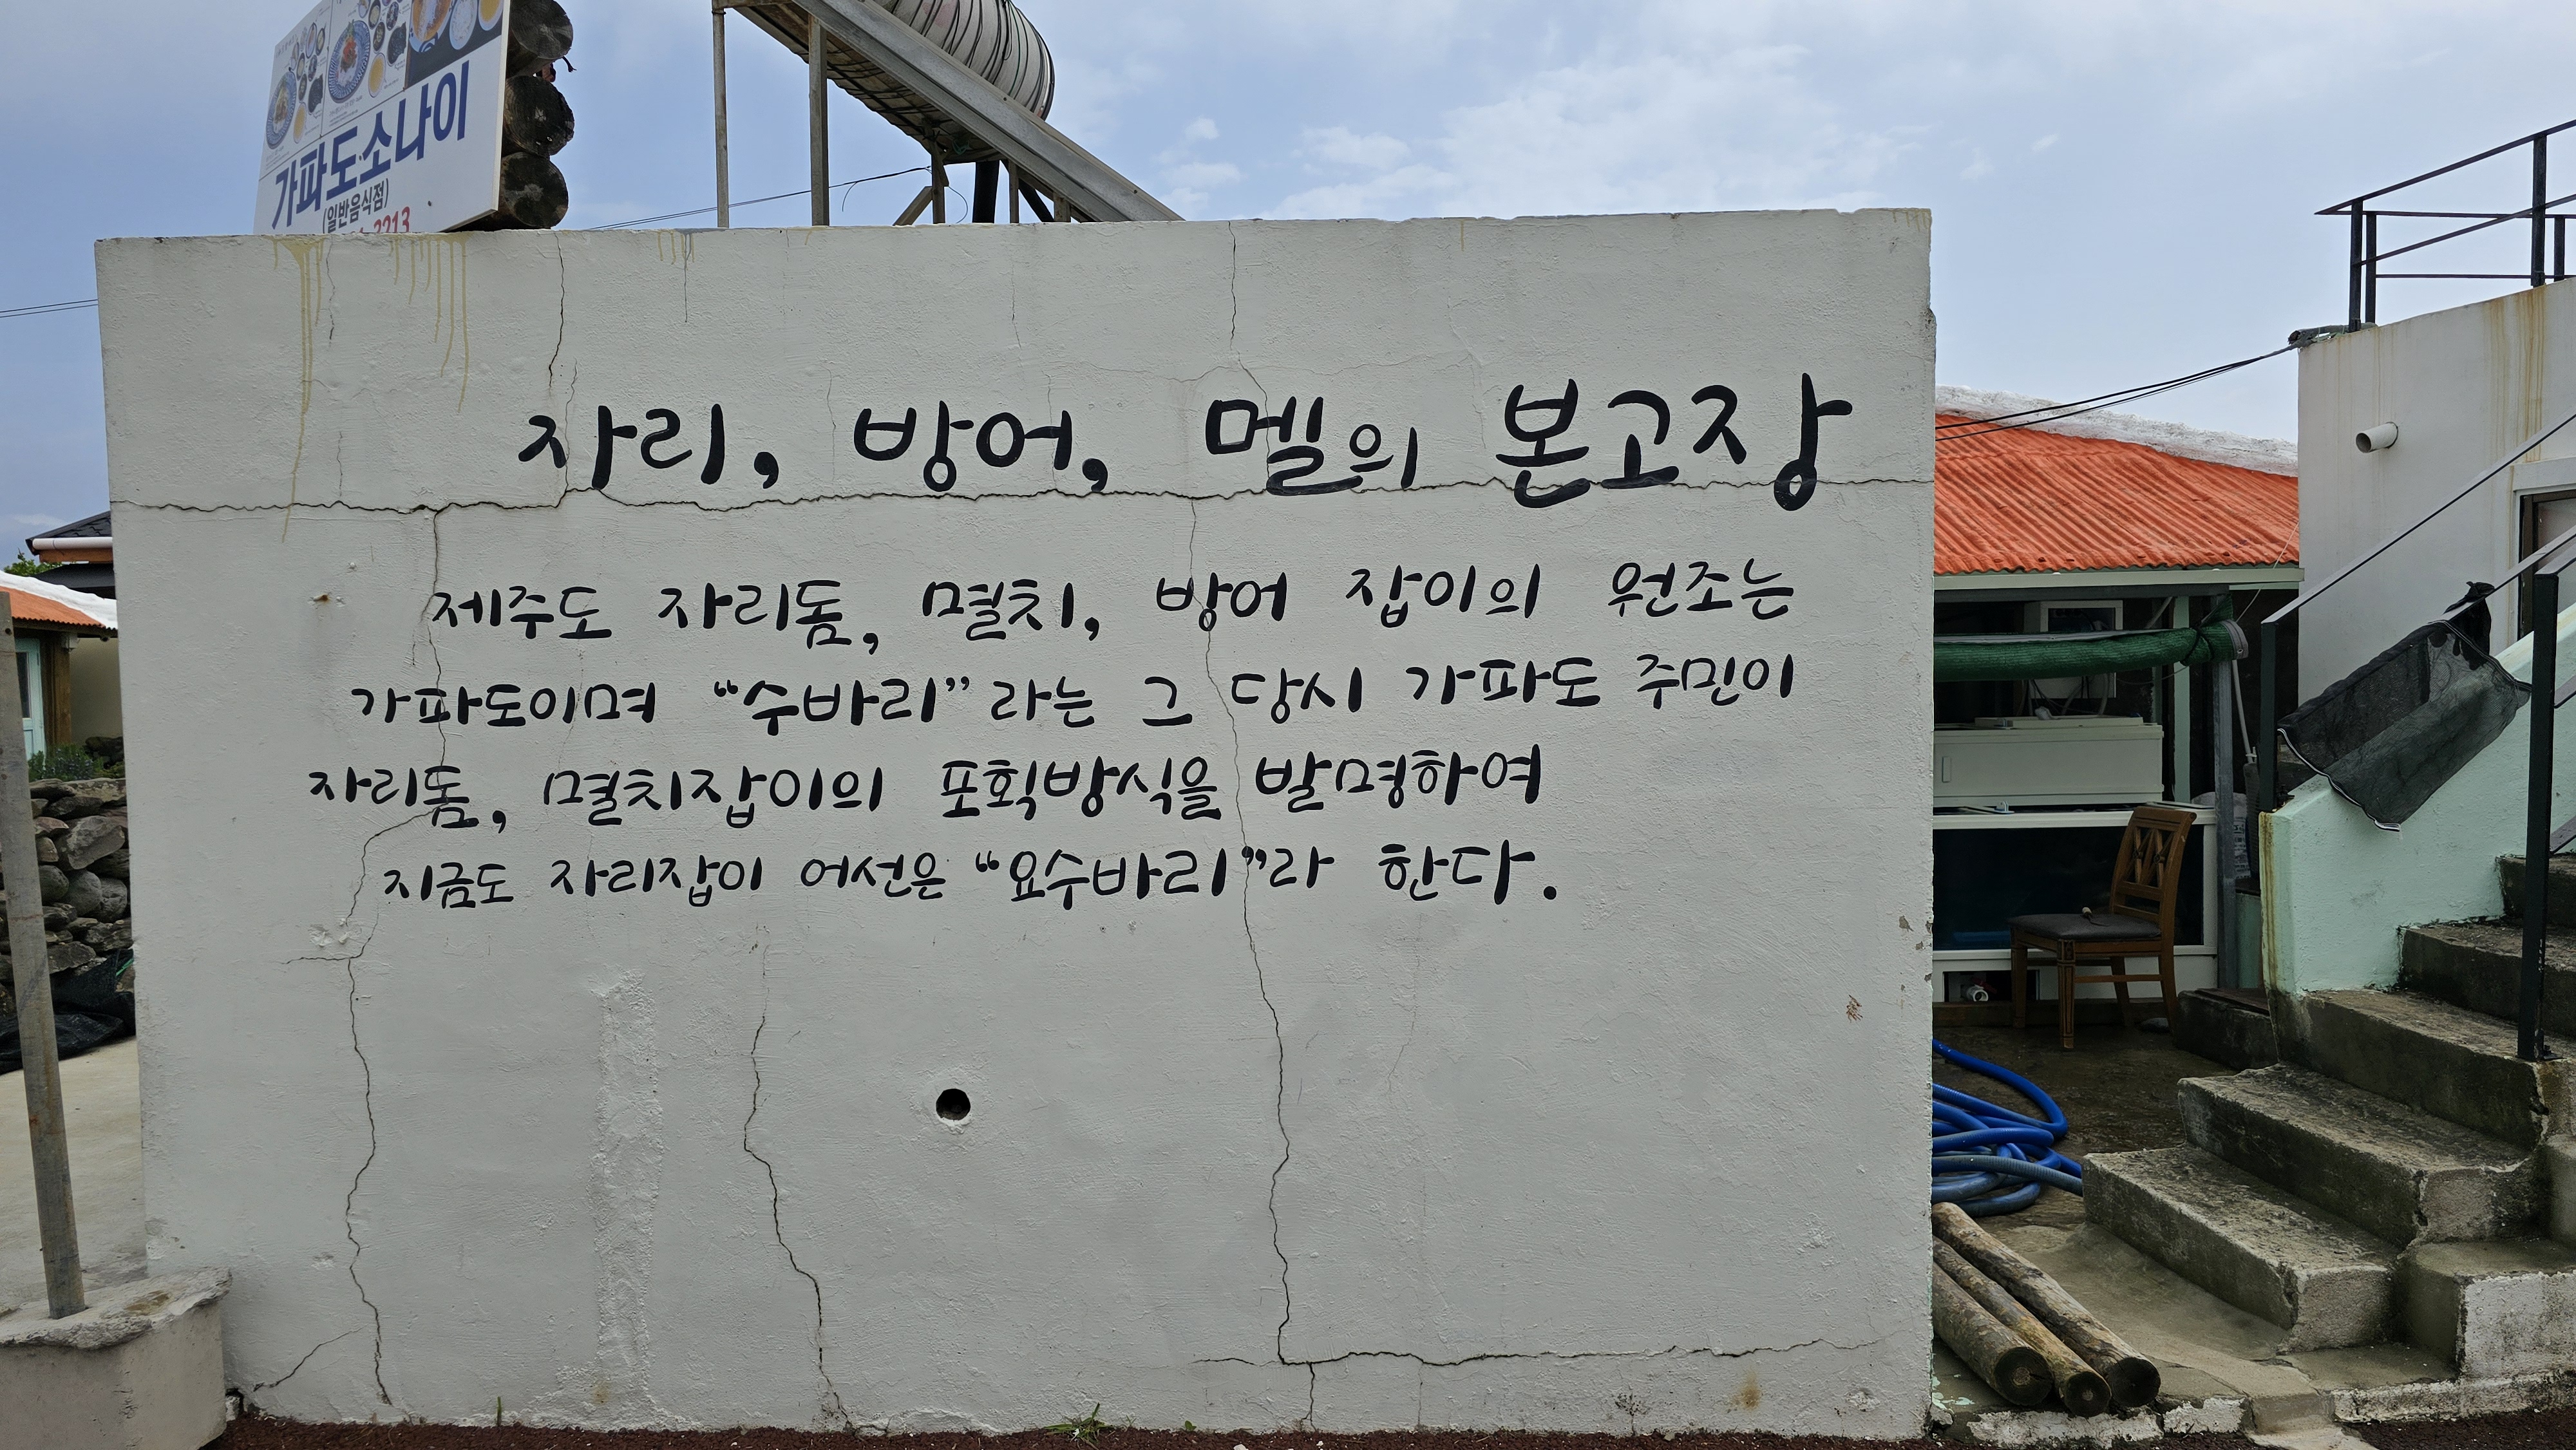 가파도소나이
(일반음식점)
2213
자리, 방어, 멜의 본고장
제주도 자리돔, 멸치, 방어 잡이의 원조는
가파도이며 “수바리”라는 그 당시 가파도 주민이
자리돔, 멸치잡이의 포획방식을 발명하여
지금도 자리잡이 어선은 “요수바리”라 한다.